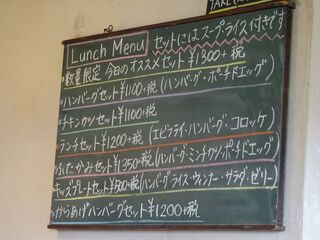 TAKE
Lunch Menu セットにはスープ・ライス付きです
数量限定 今日のオススメセット ¥1300+税
・ハンバーグセット ¥1100+税(ハンバーグ・ポーチドエッグ)
・チキンカツセット ¥1100+税
・ランチセット ¥1200+税(エビフライ・ハンバーグ・コロッケ)
・ふたかみセット ¥1350+税(ハンバーグ・ミンチカツ・ポーチドエッグ)
・キッズプレートセット ¥500+税(ハンバーグ・ライス・ウィンナー・サラダ・ゼリー)
・からあげハンバーグセット ¥1200+税